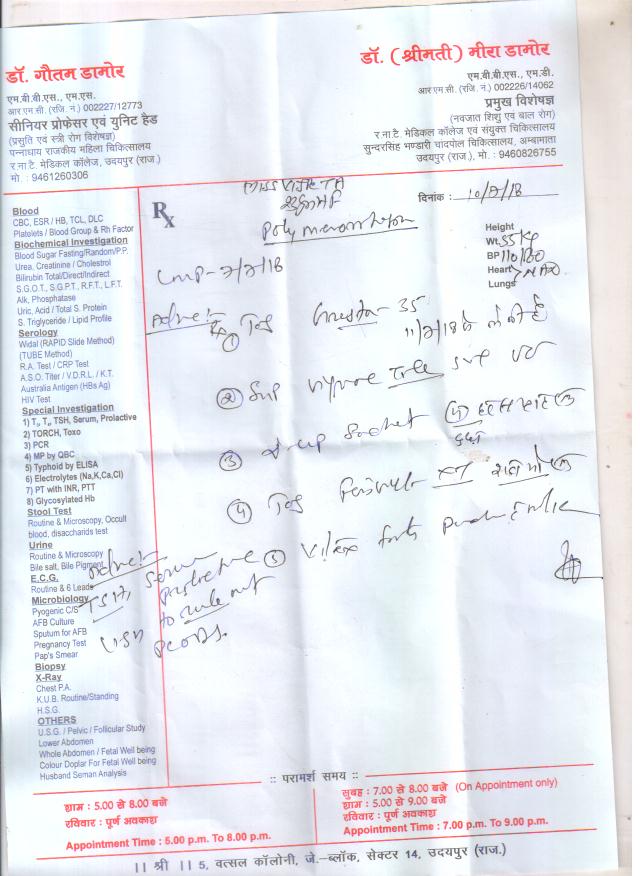 डॉ. गौतम डामोर
एम.बी.बी.एस., एम.एस.
आर.एम.सी. (रजि. नं.) 002227/12773
सीनियर प्रोफेसर एवं युनिट हैड
(प्रसुति एवं स्त्री रोग विशेषज्ञ)
पन्नाधाय राजकीय महिला चिकित्सालय
र.ना.टै. मेडिकल कॉलेज, उदयपुर (राज.)
मो. : 9461260306
डॉ. (श्रीमती) मीरा डामोर
एम.बी.बी.एस., एम.डी.
आर.एम.सी. (रजि. नं.) 002226/14062
प्रमुख विशेषज्ञ
(नवजात शिशु एवं बाल रोग)
र.ना.टै. मेडिकल कॉलेज एवं संयुक्त चिकित्सालय
सुन्दरसिंह भण्डारी चांदपोल चिकित्सालय, अम्बामाता
उदयपुर (राज.), मो. : 9460826755
Blood
CBC, ESR / HB, TCL, DLC
Platelets / Blood Group & Rh Factor
Biochemical Investigation
Blood Sugar Fasting/Random/P.P.
Urea, Creatinine / Cholestrol
Bilirubin Total/Direct/Indirect
S.G.O.T., S.G.P.T., R.F.T., L.F.T.
Alk, Phosphatase
Uric, Acid / Total S. Protein
S. Triglyceride / Lipid Profile
Serology
Widal (RAPID Slide Method)
(TUBE Method)
R.A. Test / CRP Test
A.S.O. Titer / V.D.R.L. / K.T.
Australia Antigen (HBs Ag)
HIV Test
Special Investigation
1) T₃, T₄, TSH, Serum, Prolactive
2) TORCH, Toxo
3) PCR
4) MP by QBC
5) Typhoid by ELISA
6) Electrolytes (Na,K,Ca,Cl)
7) PT with INR, PTT
8) Glycosylated Hb
Stool Test
Routine & Microscopy, Occult
blood, disaccharids test
Urine
Routine & Microscopy
Bile salt, Bile Pigment
E.C.G.
Routine & 6 Leads
Microbiology
Pyogenic C/S
AFB Culture
Sputum for AFB
Pregnancy Test
Pap's Smear
Biopsy
X-Ray
Chest P.A.
K.U.B. Routine/Standing
H.S.G.
OTHERS
U.S.G. / Pelvic / Follicular Study
Lower Abdomen
Whole Abdomen / Fetal Well being
Colour Doplar For Fetal Well being
Husband Seman Analysis
Rx
Miss
दिनांक : 10/7/18
Height
Wt. 55 Kg
BP 110/80
Heart NAD
Lungs
LMP- 7/7/18
Advice:-
① Tab 35
11/7/18 से
②
③ D-up
④ Tab
⑤ forte
Advice:-
TSH, Serum
Prolactine
to rule out
PCODS.
:: परामर्श समय ::
शाम : 5.00 से 8.00 बजे
रविवार : पूर्ण अवकाश
Appointment Time : 5.00 p.m. To 8.00 p.m.
सुबह : 7.00 से 8.00 बजे (On Appointment only)
शाम : 5.00 से 9.00 बजे
रविवार : पूर्ण अवकाश
Appointment Time : 7.00 p.m. To 9.00 p.m.
।। श्री ।। 5, वत्सल कॉलोनी, जे.-ब्लॉक, सेक्टर 14, उदयपुर (राज.)